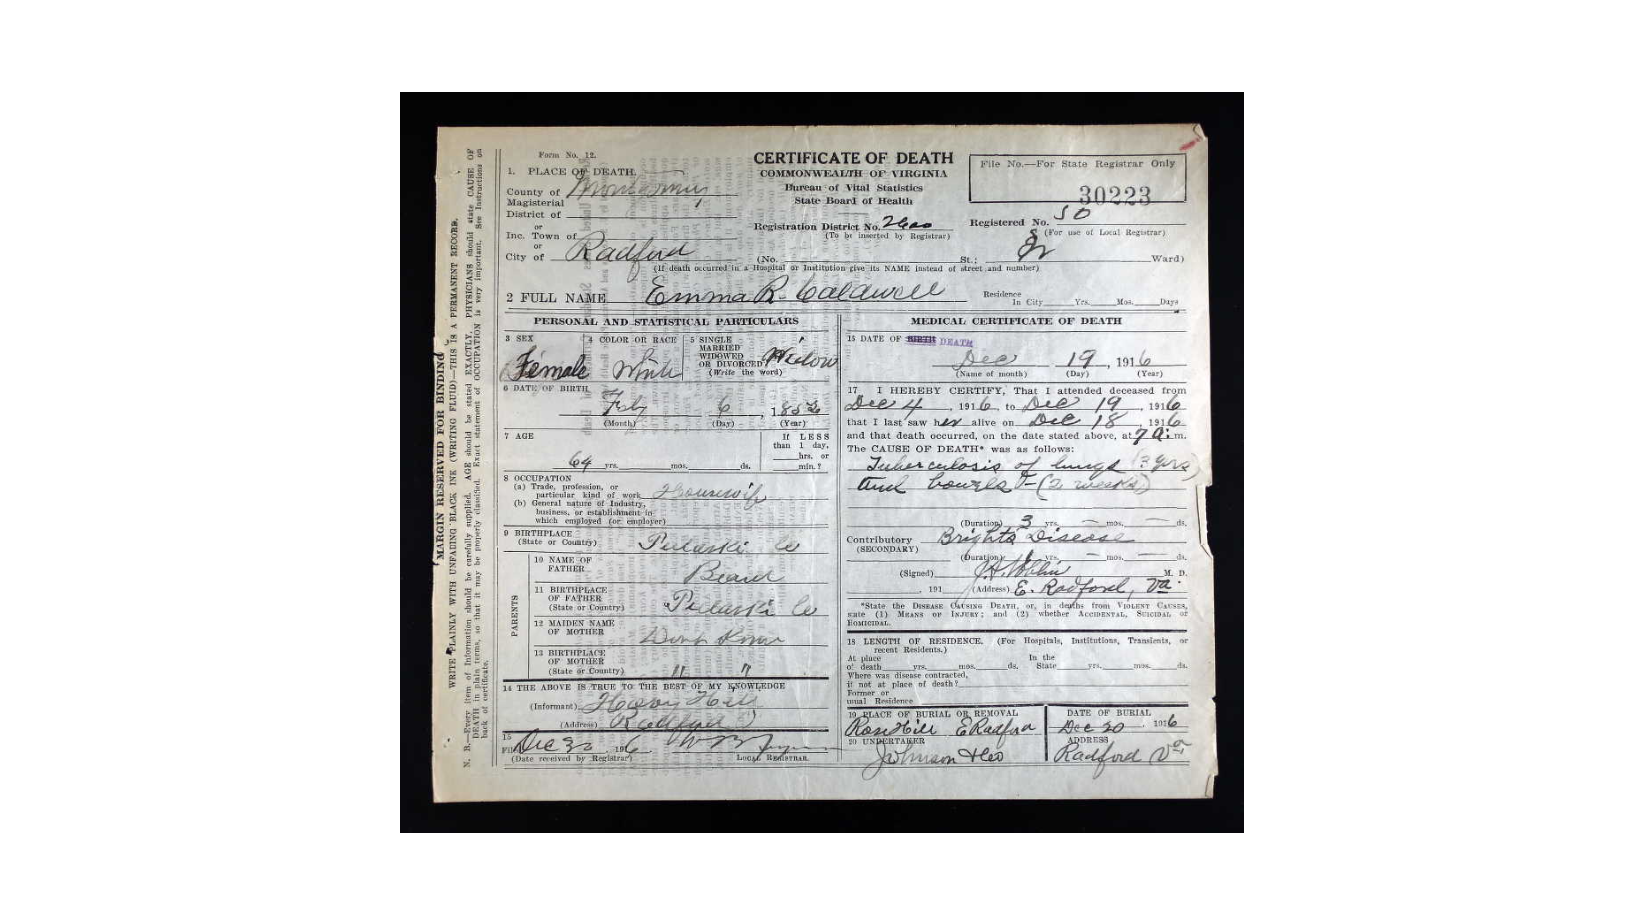 MARGIN RESERVED FOR BINDING
WRITE PLAINLY WITH UNFADING BLACK INK (WRITING FLUID)—THIS IS A PERMANENT RECORD.
N. B.—Every item of Information should be carefully supplied. AGE should be stated EXACTLY. PHYSICIANS should state CAUSE OF
DEATH in plain terms, so that it may be properly classified. Exact statement of OCCUPATION is very important. See Instructions on
back of certificate.
Form No. 12.
CERTIFICATE OF DEATH
COMMONWEALTH OF VIRGINIA
Bureau of Vital Statistics
State Board of Health
File No.—For State Registrar Only
30223
1. PLACE OF DEATH.
County of
Magisterial
District of
or
Inc. Town of
or
City of Radford
Registration District No.
(To be inserted by Registrar)
Registered No. 50
(For use of Local Registrar)
(No. St.; Ward)
(If death occurred in a Hospital or Institution give its NAME instead of street and number)
2 FULL NAME Emma R. Caldwell
Residence
In City Yrs. Mos. Days
PERSONAL AND STATISTICAL PARTICULARS
3 SEX
Female
4 COLOR OR RACE
White
5 SINGLE
MARRIED
WIDOWED
OR DIVORCED
(Write the word)
Widow
6 DATE OF BIRTH
Feby 6, 1852
(Month) (Day) (Year)
7 AGE
64 yrs. mos. ds.
If LESS
than 1 day,
hrs. or
min.?
8 OCCUPATION
(a) Trade, profession, or
particular kind of work Housewife
(b) General nature of Industry,
business, or establishment in
which employed (or employer)
9 BIRTHPLACE
(State or Country) Pulaski Co
PARENTS
10 NAME OF
FATHER
Beard
11 BIRTHPLACE
OF FATHER
(State or Country) Pulaski Co
12 MAIDEN NAME
OF MOTHER Dont Know
13 BIRTHPLACE
OF MOTHER
(State or Country) " "
14 THE ABOVE IS TRUE TO THE BEST OF MY KNOWLEDGE
(Informant) Hill
(Address) Radford
15
Filed Dec 1916
(Date received by Registrar) LOCAL REGISTRAR.
MEDICAL CERTIFICATE OF DEATH
15 DATE OF BIRTH DEATH
Dec 19, 1916
(Name of month) (Day) (Year)
17 I HEREBY CERTIFY, That I attended deceased from
Dec 4, 1916, to Dec 19, 1916
that I last saw her alive on Dec 18, 1916
and that death occurred, on the date stated above, at 7 a. m.
The CAUSE OF DEATH* was as follows:
Tuberculosis of lungs (3 yrs)
and bowels (2 weeks)
(Duration) 3 yrs. — mos. — ds.
Contributory Brights Disease
(SECONDARY)
(Duration) 1 yrs. — mos. — ds.
(Signed) M. D.
, 191 (Address) E. Radford, Va.
*State the DISEASE CAUSING DEATH, or, in deaths from VIOLENT CAUSES,
state (1) MEANS OF INJURY; and (2) whether ACCIDENTAL, SUICIDAL or
HOMICIDAL.
18 LENGTH OF RESIDENCE. (For Hospitals, Institutions, Transients, or
recent Residents.)
At place In the
of death yrs. mos. ds. State yrs. mos. ds.
Where was disease contracted,
if not at place of death?
Former or
usual Residence
19 PLACE OF BURIAL OR REMOVAL
Rose Hill E Radford
DATE OF BURIAL
Dec 20, 1916
20 UNDERTAKER
Johnson
ADDRESS
Radford Va